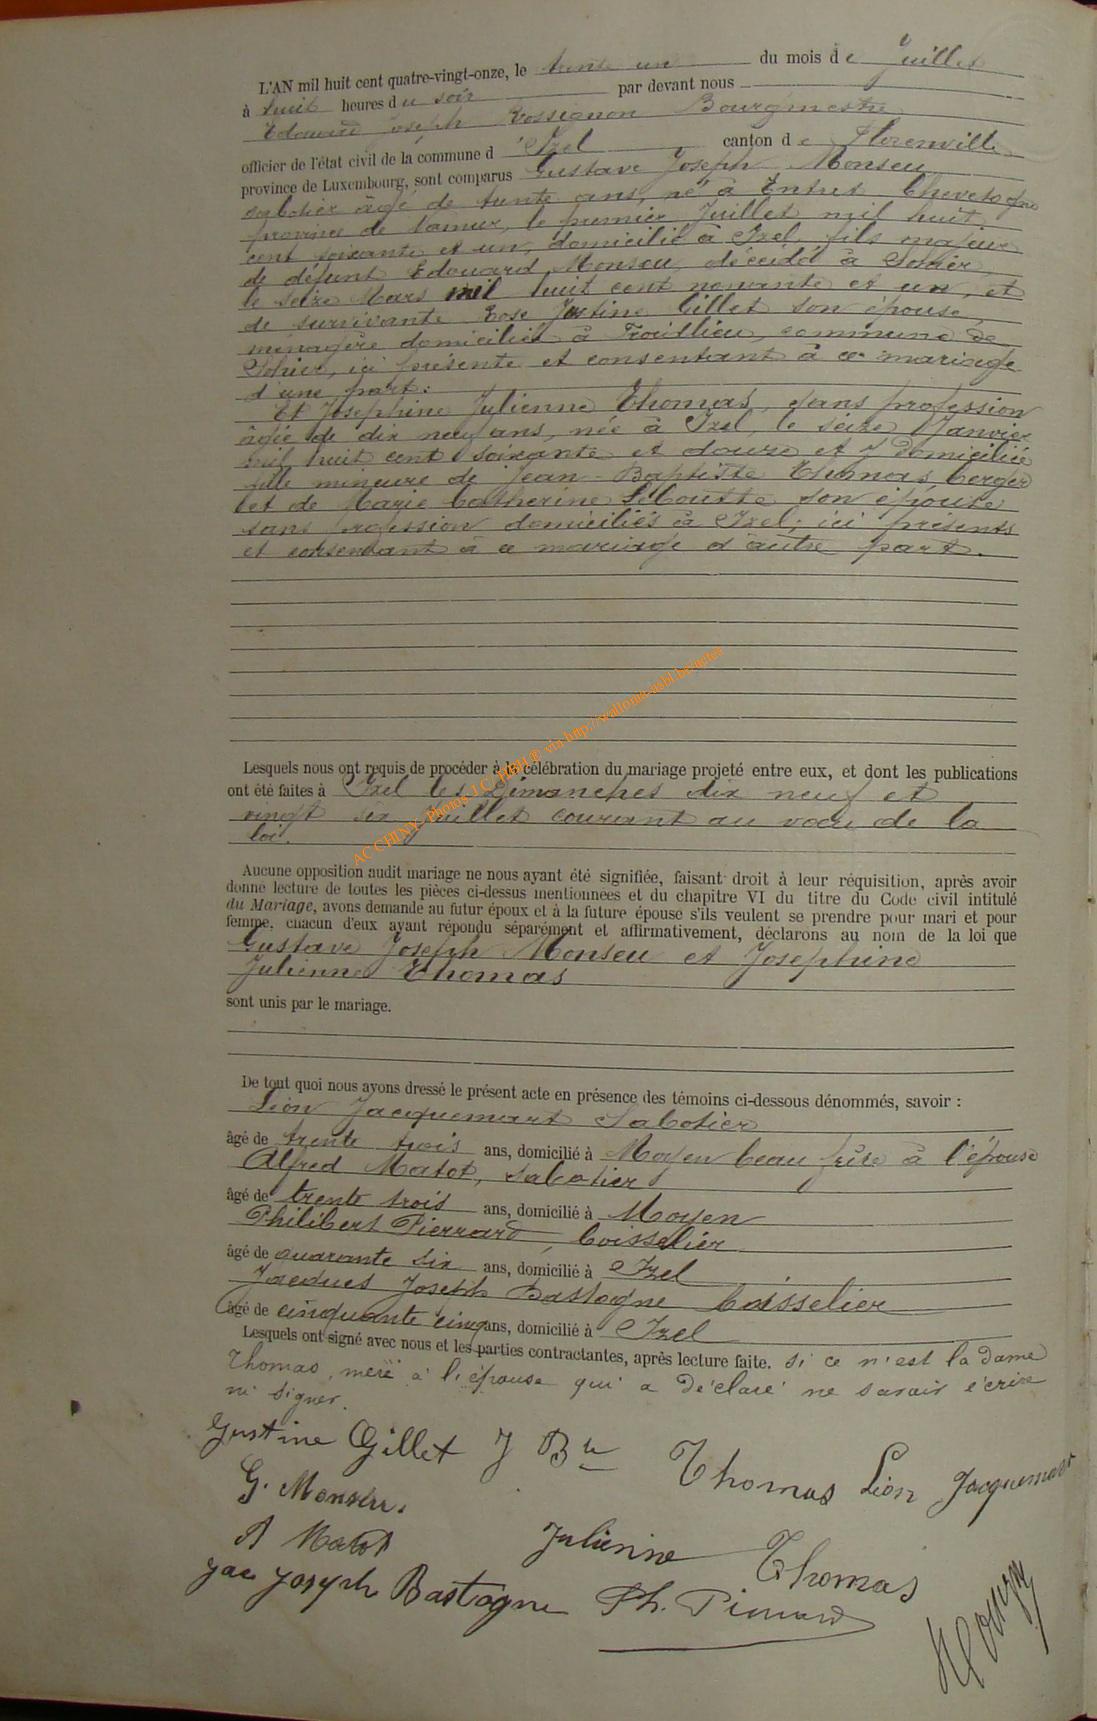 L'AN mil huit cent quatre-vingt-onze, le trente un du mois de Juillet
à huit heures du soir par devant nous
Edouard Joseph Rossignon Bourgmestre
officier de l'état civil de la commune d'Izel canton de Florenville
province de Luxembourg, sont comparus Gustave Joseph Monseu
sabotier âgé de trente ans, né à Chevetogne
province de Namur, le premier Juillet mil huit
cent soixante et un, domicilié à Izel, fils majeur
de défunt Edouard Monseu, décédé à Sohier,
le seize Mars mil huit cent nonante et un, et
de survivante Rose Justine Gillet son épouse,
ménagère domiciliée à Froidlieu, commune de
Sohier, ici présente et consentant à ce mariage
d'une part:
Et Josephine Julienne Thomas, sans profession
âgée de dix neuf ans, née à Izel, le seize Janvier
mil huit cent soixante et douze et y domiciliée
fille mineure de Jean-Baptiste Thomas, berger
et de Marie Catherine son épouse
sans profession domiciliés à Izel; ici présents
et consentant à ce mariage d'autre part.
Lesquels nous ont requis de procéder à la célébration du mariage projeté entre eux, et dont les publications
ont été faites à Izel les Dimanches dix neuf et
vingt six Juillet courant au voeu de la
loi.
AC CHINY- Photos J.C. HBH® via http://wallonia-asbl.be/actes
Aucune opposition audit mariage ne nous ayant été signifiée, faisant droit à leur réquisition, après avoir
donné lecture de toutes les pièces ci-dessus mentionnées et du chapitre VI du titre du Code civil intitulé
du Mariage, avons demande au futur époux et à la future épouse s'ils veulent se prendre pour mari et pour
femme, chacun d'eux ayant répondu séparément et affirmativement, déclarons au nom de la loi que
Gustave Joseph Monseu et Josephine
Julienne Thomas
sont unis par le mariage.
De tout quoi nous avons dressé le présent acte en présence des témoins ci-dessous dénommés, savoir :
Léon Jacquemart Sabotier
âgé de trente trois ans, domicilié à Moyen beau frère à l'épouse
Alfred Matot, sabotier
âgé de trente trois ans, domicilié à Moyen
Philibert Pierrard, boisselier
âgé de quarante six ans, domicilié à Izel
Jacques Joseph Bastogne boisselier
âgé de cinquante cinq ans, domicilié à Izel
Lesquels ont signé avec nous et les parties contractantes, après lecture faite. si ce n'est la dame
Thomas, mère à l'épouse qui a déclaré ne savoir écrire
ni signer.
Justine Gillet J Bte Thomas Léon Jacquemart
G. Monseu.
A Matot Julienne Thomas
Jac Joseph Bastogne Ph. Pierrard